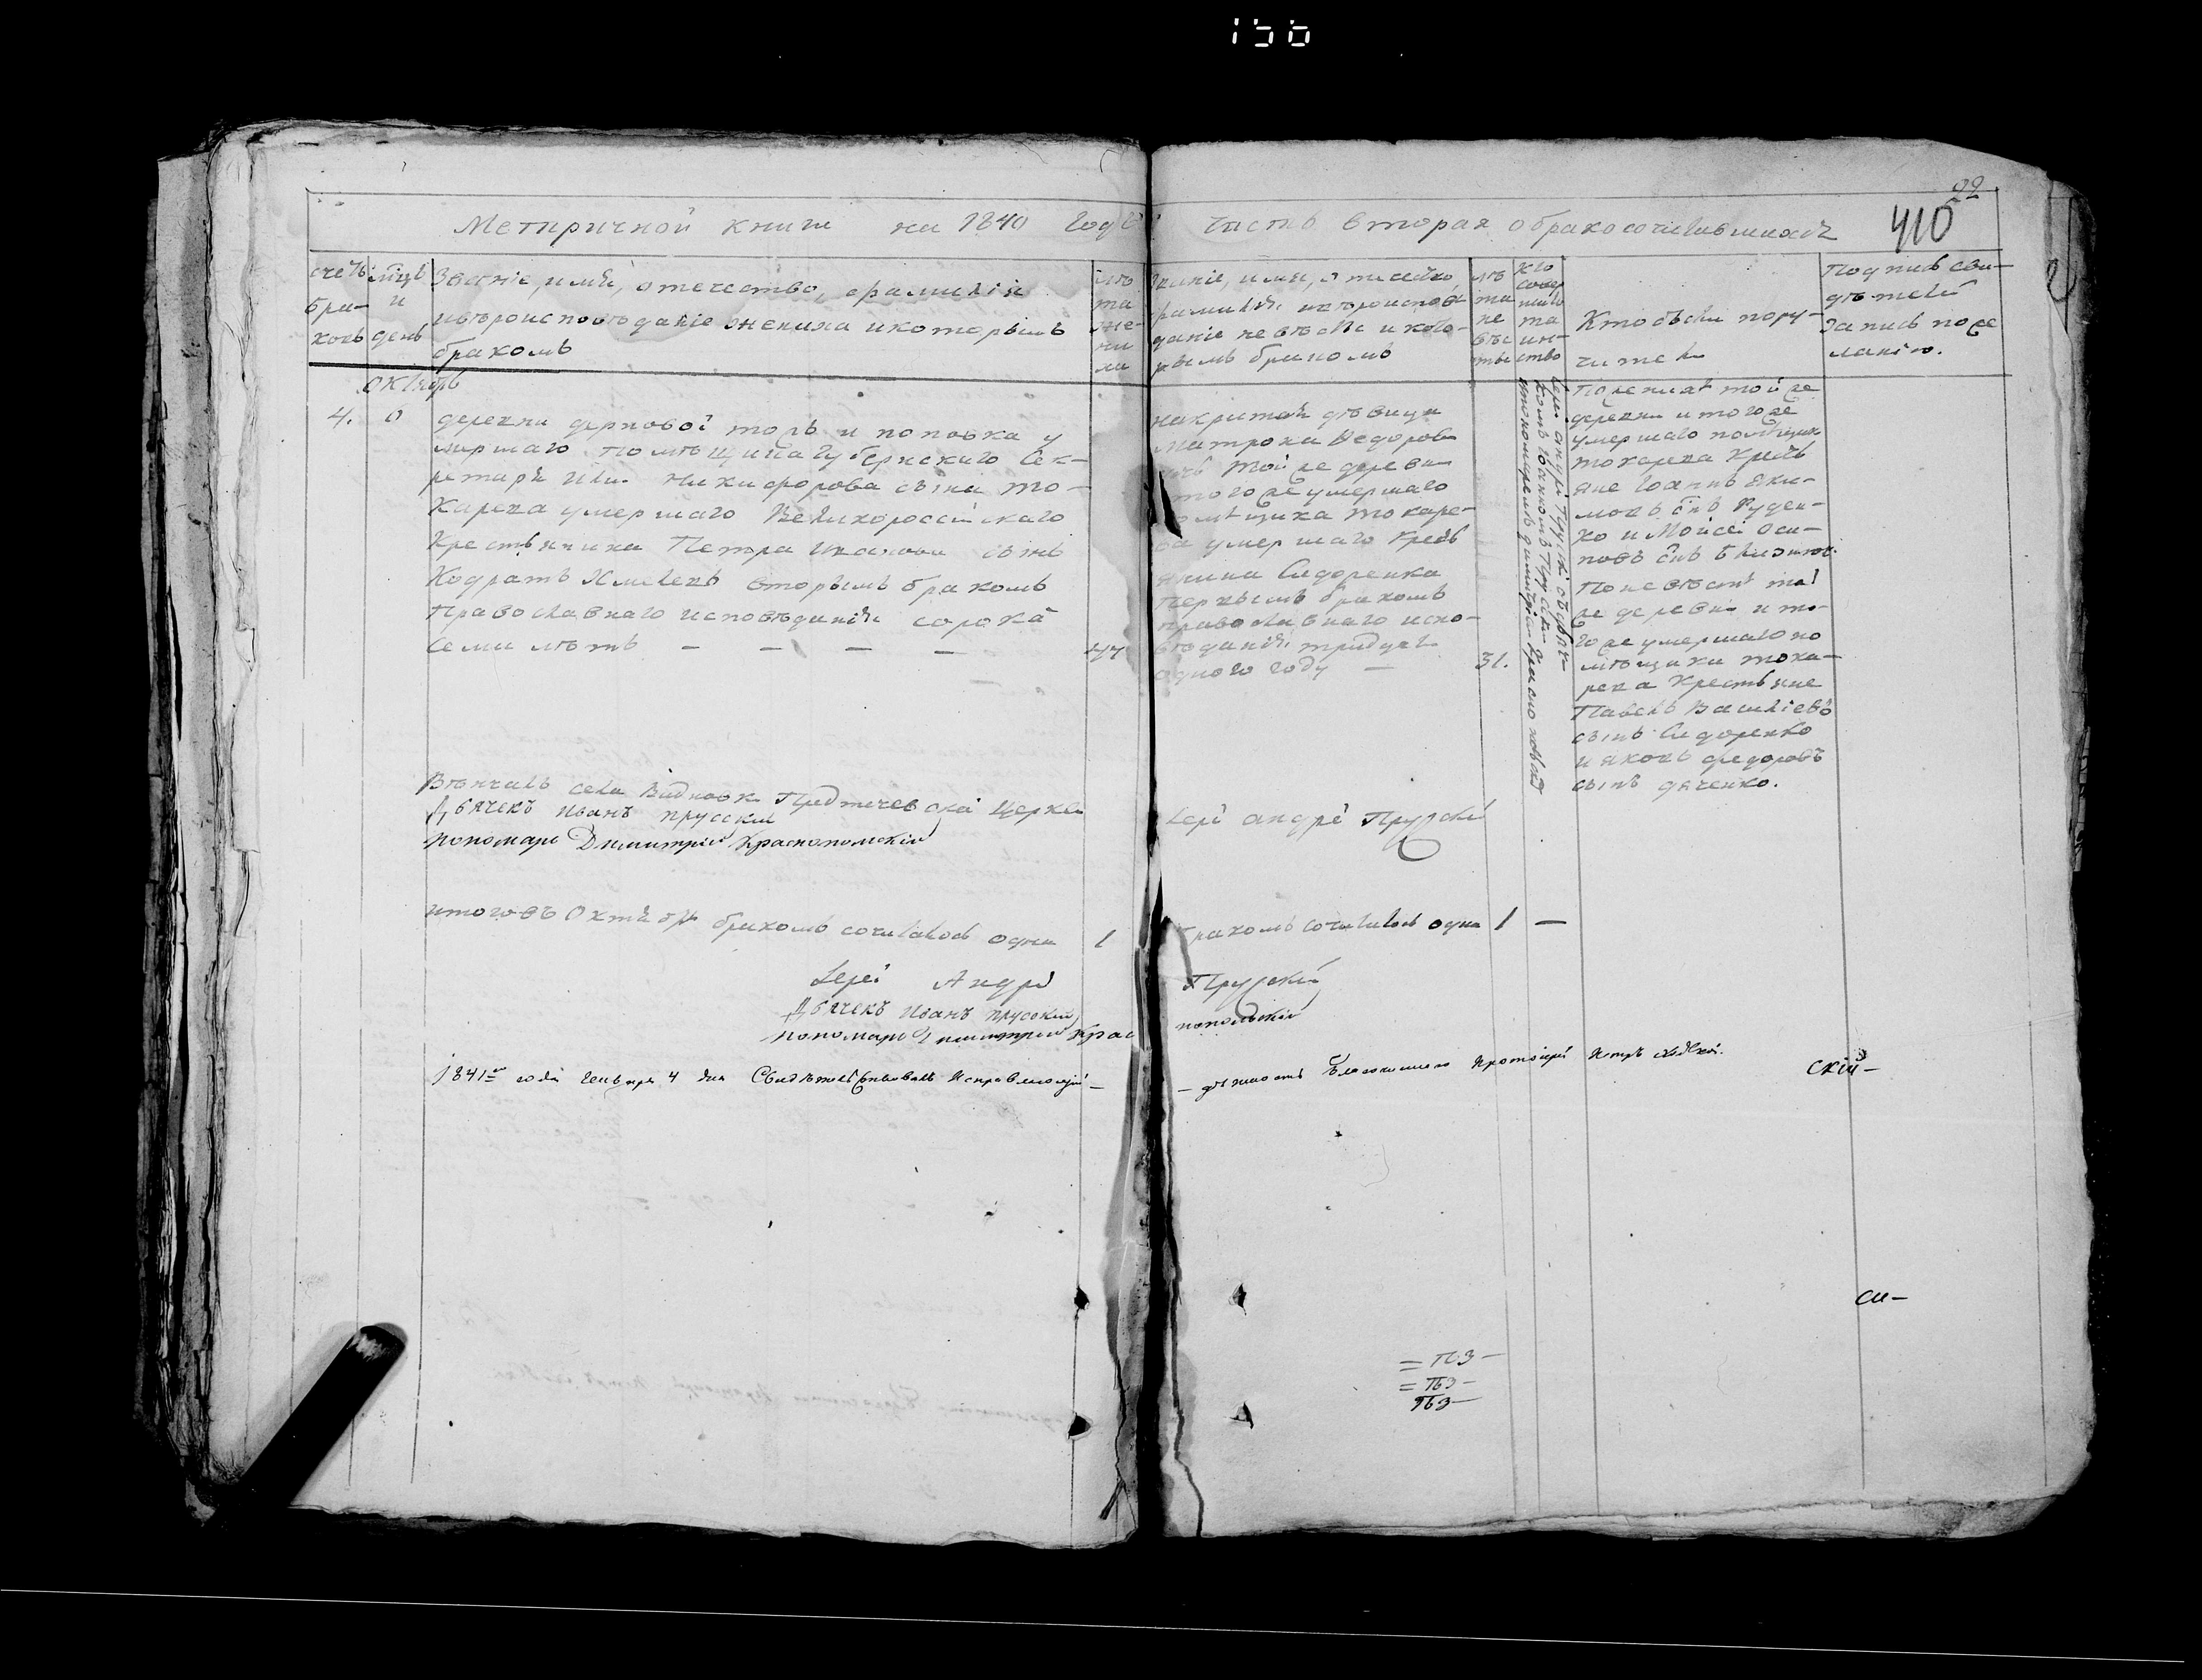 156
99
410
Метиричной книги на 1840 годъ
часть вторая обракосочетавшихся
счетъ
бра-
ковъ
мцъ
и
день
Званіе, имя, отечество, фамилія
ивѣроисповѣданіе жениха икоторымъ
бракомъ
лѣ
та
же-
ни
ха
Званіе, имя, отечество,
фамилія ивѣроисповѣ
даніе невѣсты икото-
рымъ бракомъ
лѣ
та
не
вѣс
ты
кто
совер
шалъ
та
ин-
ство
Кто были пору-
чители
Подпись сви-
дѣтелей
запись поже
ланію.
октябрь
4. 0
деревни дерновой тожъ и поповка у
мершаго помѣщика Губернскаго Сек-
ретаря Никифорова сына То-
Карева умершаго Великороссійскаго
Крестьянина Петра Иванова сынъ
Кодратъ вторымъ бракомъ
Православнаго исповѣданія сорока
семи лѣтъ — — — —
47
дѣвица
Матрона Федоров
той же деревни
того же умершаго
помѣщика Токаре-
ва умершаго Крест
янина Сидоренка
первымъ бракомъ
православнаго испо-
вѣданія тридцат
одного году —
31.
Іерей Андрей Прускій съ дьяч-
комъ Іоанномъ Прускимъ
ипономаремъ Димитріемъ
Поженихѣ той же
деревни и того же
умершаго помѣщика
токарева Кресть
яне Іоаннъ Яки-
мовъ снъ Руден-
ко и Мойсей Оси-
повъ снъ
Поневѣстѣ той
же деревни и то-
го же умершаго по
мѣщика тока-
рева Крестьяне
Павелъ Василіевъ
сынъ Сидоренко
и яковъ федоровъ
сынъ дяченко.
Вѣнчалъ села Видновки Предтечевской Церкви
Іерей андрей Прускій
Дьячекъ Иванъ прусскій
пономарь Димитрій Краснопольскій
итого въ Октябрѣ бракомъ сочитался одинъ 1
бракомъ сочиталась одна 1 —
Іерей Андрей
Прускій
Дьячекъ Иванъ прусскій
пономарь Димитрій Крас
нопольскій
1841го года Генваря 4 дня Свидѣтельствовалъ Исправляющій —
— должность Благочиннаго Протоіерей Петръ
скій —
си —
= пбз —
= пбз —
пбз —